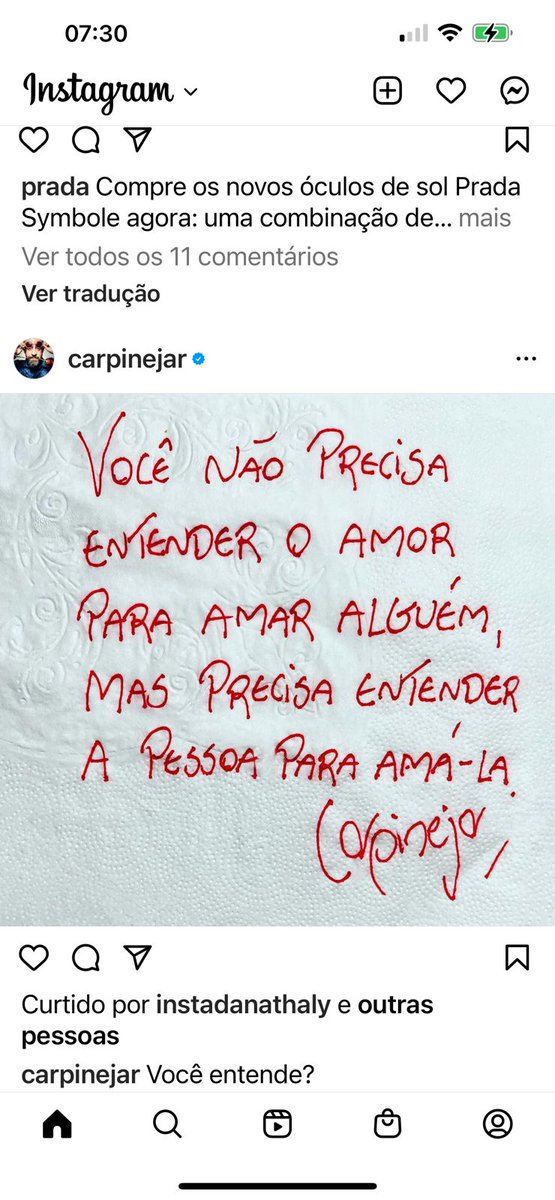 07:30
Instagram
prada Compre os novos óculos de sol Prada
Symbole agora: uma combinação de... mais
Ver todos os 11 comentários
Ver tradução
carpinejar
VOCÊ NÃO PRECISA
ENTENDER O AMOR
PARA AMAR ALGUÉM,
MAS PRECISA ENTENDER
A PESSOA PARA AMÁ-LA.
Carpinejar
Curtido por instadanathaly e outras
pessoas
carpinejar Você entende?